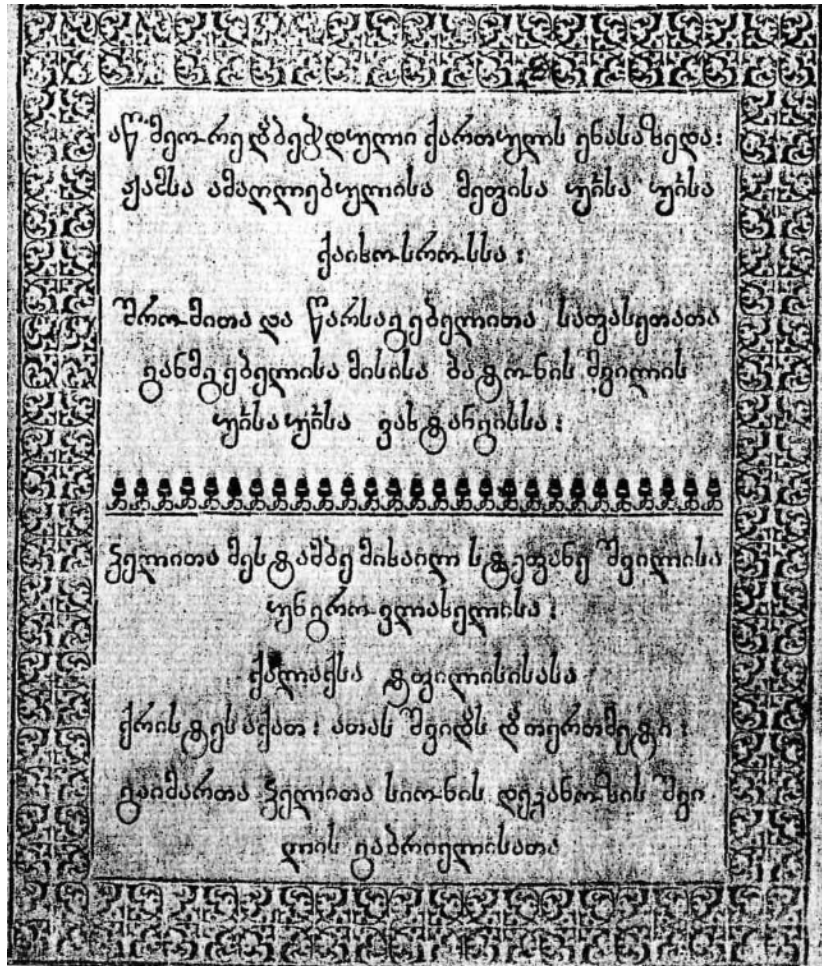 აწ მეორედ ბეჭდული ქართულს ენასაზედა:
ჟამსა ამაღლებულისა მეფისა უ˜ისა უ˜ისა
ქაიხოსროსსა :
შრომითა და წარსაგებელითა საფასეთათა
განმგებელისა მისისა ბატონის შვილის
უ˜ისა უ˜ისა ვახტანგისსა :
ჴელითა მესტამბე მიხაილ სტეფანე შვილისა
უნგროვლახელისა :
ქალაქსა ტფილისისასა
ქრისტესაქათ : ათას შვიდს და თერთმეტი :
გაიმართა ჴელითა სიონის დეკანოზის შვი
ლის გაბრიელისათა